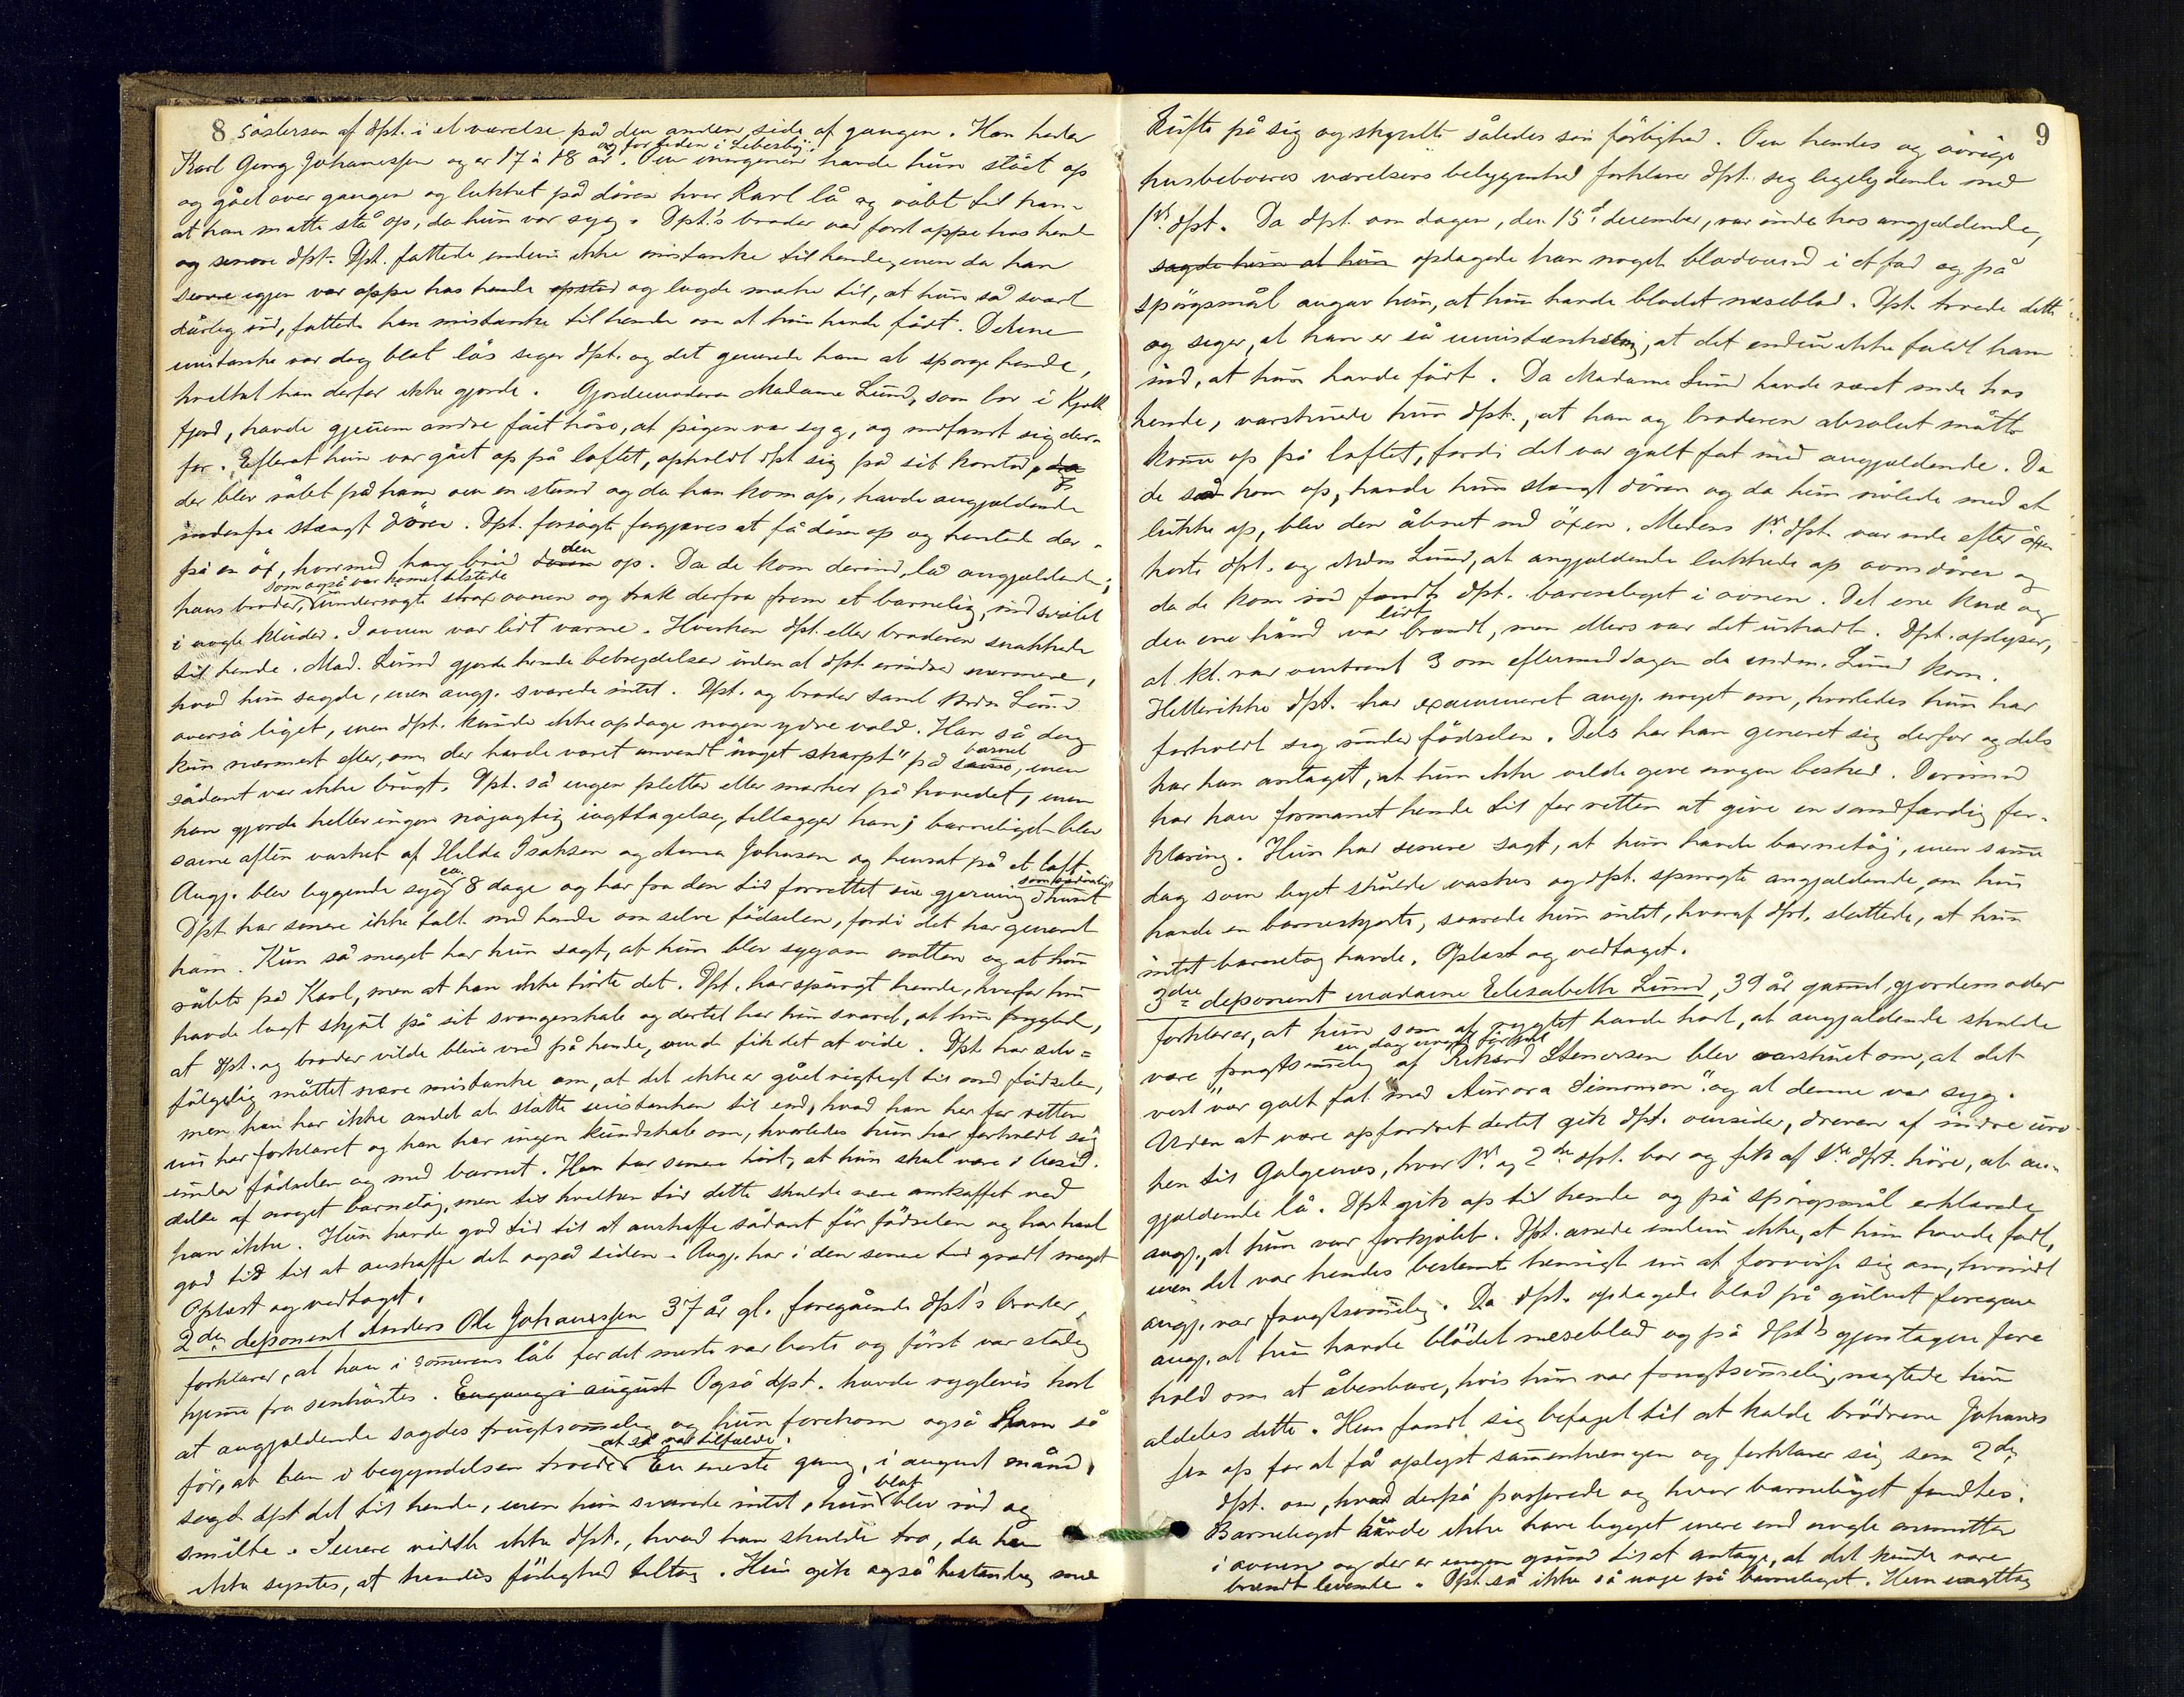 8 søstersøn af dpt. i et værelse på den anden side af gangen. Han heder
Karl Georg Johannessen og er 17 à 18 år og for tiden i Lebesby. Om morgenen havde hun stået op
og gået over gangen og lukket på døren hvor Karl lå og råbt til ham
at han måtte stå op, da hun var syg. Dpt.'s broder var først oppe hos hende
og senere dpt. Dpt. fattede endnu ikke mistanke til hende, men da han
senere igjen var oppe hos hende og lagde mærke til, at hun så svært
dårlig ud, fattede han mistanke til hende om at hun havde født. Denne
mistanke var dog blot løs siger dpt. og det generede ham at spørge hende,
hvilket han derfor ikke gjorde. Gjordemoderen Madame Lund, som bor i Kjølle
fjord, havde gjennem andre fået høre, at pigen var syg, og indfandt sig der-
for. Efterat hun var gået op på loftet, opholdt dpt sig på sit kontor, og
der blev råbt på ham om en stund og da han kom op, havde angjældende
indenfra stængt døren. Dpt. forsøgte forgjæves at få døren op og hentede der-
på en øx, hvormed han brød den op. Da de kom derind, lå angjældende;
hans broder, som også var kommet tilstede undersøgte strax ovnen og trak derfra frem et barnelig, indsvøbt
i nogle klæder. I ovnen var lidt varme. Hverken dpt. eller broderen snakkede
til hende. Mad. Lund gjorde hende bebreidelser uden at dpt. erindrer nærmere,
hvad hun sagde, men angj. svarede intet. Dpt. og broder samt Mdm Lund
overså liget, men dpt. kunde ikke opdage nogen ydre vold. Han så dog
kun nærmest efter, om der havde været anvendt "noget skarpt" på barnet, men
sådant var ikke brugt. Dpt. så ingen pletter eller mærker på hovedet, men
han gjorde heller ingen nøjagtig iagttagelse, tillægger han; barneliget blev
samme aften vasket af Hilda Isaksen og Anna Johnsen og hensat på et loft.
Angj. blev liggende syg ca. 8 dage og har fra den tid forrettet sin gjerning i huset som sædvanligt
Dpt har senere ikke talt med hende om selve fødselen, fordi det har generet
ham. Kun så meget har hun sagt, at hun blev syg om natten og at hun
råbte på Karl, men at han ikke hørte det. Dpt. har spurgt hende, hvorfor hun
havde lagt skjul på sit svangerskab og dertil har hun svaret, at hun frygtede,
at dpt. og broder vilde blive vred på hende, om de fik det at vide. Dpt har selv-
følgelig måttet nære mistanke om, at det ikke er gået rigtigt til med fødselen,
men han har ikke andet at støtte mistanken til end, hvad han her for retten
nu har forklaret og han har ingen kundskab om, hvorledes hun har forholdt sig
under fødselen og med barnet. Han har senere hørt, at hun skal være i besid-
delse af noget barnetøj, men til hvilken tid dette skulde være anskaffet ved
han ikke. Hun havde god tid til at anskaffe sådant før fødselen og har havt
god tid til at anskaffe det også siden. Angj. har i den senere tid grædt meget
Oplæst og vedtaget.
2den deponent Anders Ole Johannessen 37 år gl. foregående dpt's broder,
forklarer, at han i sommerens løb for det meste var borte og først var stadig
hjemme fra senhøstes. Engang i august Også dpt. havde rygtevis hørt
at angjældende sagdes frugtsommelig og hun forekom også ham så
før, at han i begyndelsen troede at så var tilfælde. En eneste gang, i august måned,
sagde dpt det til hende, men hun svarede intet, hun blot blev rød og
smilte. Senere vidste ikke dpt., hvad han skulde tro, da han
ikke syntes, at hendes førlighed tiltog. Hun gik også bestandig med
9
kufte på sig og skjulte således sin førlighed. Om hendes og øvrige
husbeboeres værelsers beliggenhed forklarer dpt. sig ligelydende med
1ste dpt. Da dpt om dagen, den 15de december, var inde hos angjældende,
sagde hun at hun opdagede han noget blodvand i et fad og på
spørgsmål angav hun, at hun havde blødet næseblod. Dpt. troede dette
og siger, at han er så umistænksom, at det endnu ikke faldt ham
ind, at hun havde født. Da Madame Lund havde været inde hos
hende, varskuede hun dpt., at han og broderen absolut måtte
komme op på loftet, fordi det var galt fat med angjældende. Da
de så kom op, havde hun stængt døren og da hun nølede med at
lukke op, blev den åbnet med øxen. Medens 1ste dpt. var nede efter øxen
hørte dpt. og Mdm Lund, at angjældende lukkede op ovnsdøren og
da de kom ind fandt dpt. barneliget i ovnen. Det ene knæ og
den ene hånd var lidt brændt, men ellers var det uskadt. Dpt. oplyser,
at kl. var omtrent 3 om eftermiddagen da mdm. Lund kom.
Heller ikke dpt. har examineret angj. noget om, hvorledes hun har
forholdt sig under fødselen. Dels har han generet sig derfor og dels
har han antaget, at hun ikke vilde give nogen besked. Derimod
har han formanet hende til for retten at give en sandfærdig for-
klaring. Hun har senere sagt, at hun havde barnetøj, men samme
dag som liget skulde vaskes og dpt. spurgte angjældende, om hun
havde en barneskjorte, svarede hun intet, hvoraf dpt. sluttede, at hun
intet barnetøj havde. Oplæst og vedtaget.
3die deponent madame Elisabeth Lund, 39 år gammel, gjordemoder
forklarer, at hun som af rygtet havde hørt, at angjældende skulde
være frugtsommelig en dag af Rikard Stenersen blev varskuet om, at det
vist "var galt fat med Aurora Simonsen" og at denne var syg.
Uden at være opfordret dertil gik dpt. omsider, dreven af indre uro
hen til Galgenes, hvor 1ste og 2den dpt. bor og fik af 1ste dpt. høre, at an-
gjældende lå. Dpt gik op til hende og på spørgsmål erklærede
angj., at hun var forkjølet. Dpt. anede endnu ikke, at hun havde født,
men det var hendes bestemte hensigt nu at forvisse sig om, hvorvidt
angj. var frugtsommelig. Da dpt. opdagede blod på gulvet foregav
angj. at hun havde blødet næseblod og på dpt's gjentagne fore
hold om at åbenbare, hvis hun var frugtsommelig, nægtede hun
aldeles dette. Hun fandt sig beføjet til at kalde brødrene Johannes
sen op for at få oplyst sammenhængen og forklarer sig som 2den
dpt. om, hvad derpå passerede og hvor barneliget fandtes.
Barneliget kunde ikke have ligget mere end nogle minutter
i ovnen og der er ingen grund til at antage, at det kunde være
brændt levende. Dpt. så ikke så nøje på barneliget. Hun iagttog